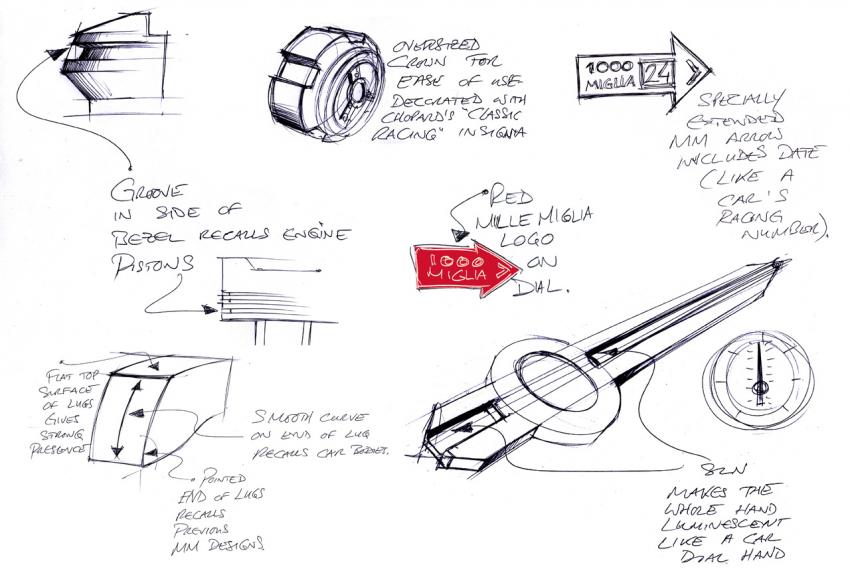 OVERSIZED
CROWN FOR
EASE OF USE
DECORATED WITH
CHOPARD'S "CLASSIC
RACING" INSIGNIA
1000
MIGLIA
24
SPECIALLY
EXTENDED
MM ARROW
INCLUDES DATE
(LIKE A
CAR'S
RACING
NUMBER).
GROOVE
IN SIDE OF
BEZEL RECALLS ENGINE
PISTONS
RED
MILLE MIGLIA
LOGO
ON
DIAL.
1000
MIGLIA
FLAT TOP
SURFACE
OF LUGS
GIVES
STRONG
PRESENCE
SMOOTH CURVE
ON END OF LUG
RECALLS CAR BODIES.
POINTED
END OF LUGS
RECALLS
PREVIOUS
MM DESIGNS
SLN
MAKES THE
WHOLE HAND
LUMINESCENT
LIKE A CAR
DIAL HAND